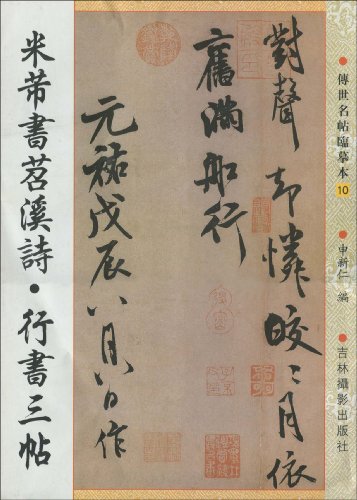 傳世名帖臨摹本 10
申新仁 編
吉林攝影出版社
對聲却憐皎〻月依
舊滿船行
元祐戊辰八月八日作
米芾書苕溪詩・行書三帖